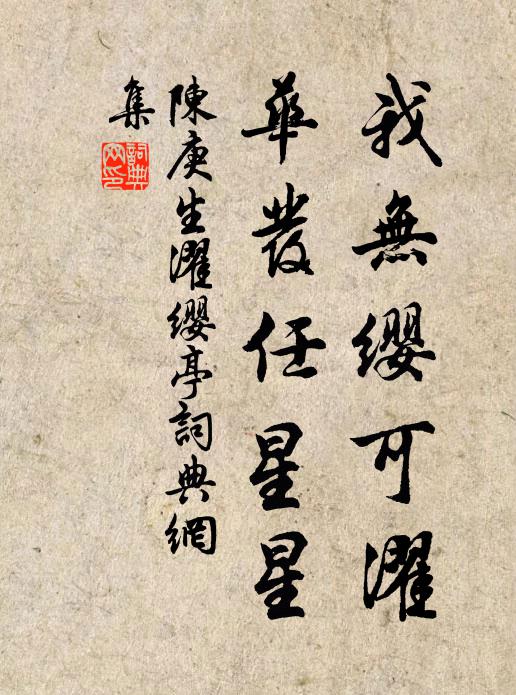 我無纓可濯
華發任星星
陳庚生濯纓亭詞典網
集
詞典
网印